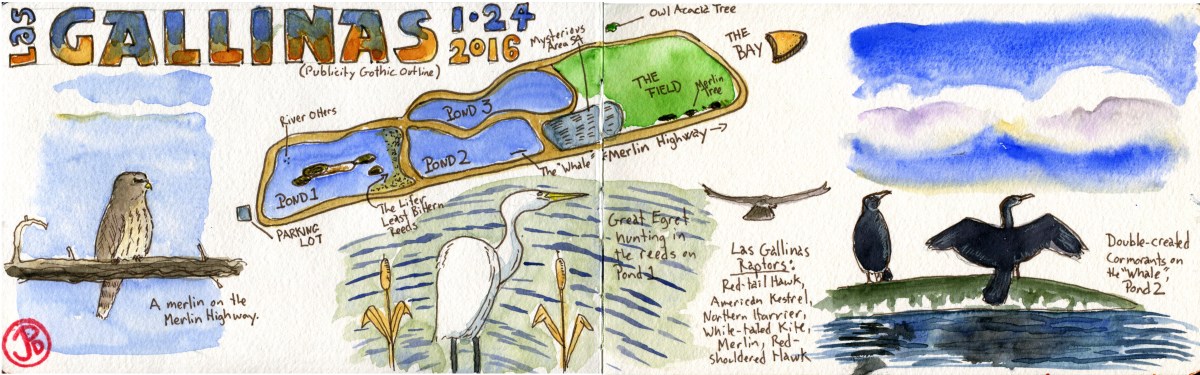 Las
GALLINAS
1·24
2016
(Publicity Gothic Outline)
Owl Acacia Tree
Mysterious
Area 54
THE
BAY
THE
FIELD
Merlin
Tree
POND 3
River Otters
POND 1
POND 2
The "Whale"
Merlin Highway →
PARKING
LOT
The Lifer
Least Bittern
Reeds
A merlin on the
Merlin Highway.
Great Egret
hunting in
the reeds on
Pond 1
Las Gallinas
Raptors:
Red-tail Hawk,
American Kestrel,
Northern Harrier,
White-tailed Kite,
Merlin, Red-
shouldered Hawk
Double-created
Cormorants on
the "Whale",
Pond 2
JPD